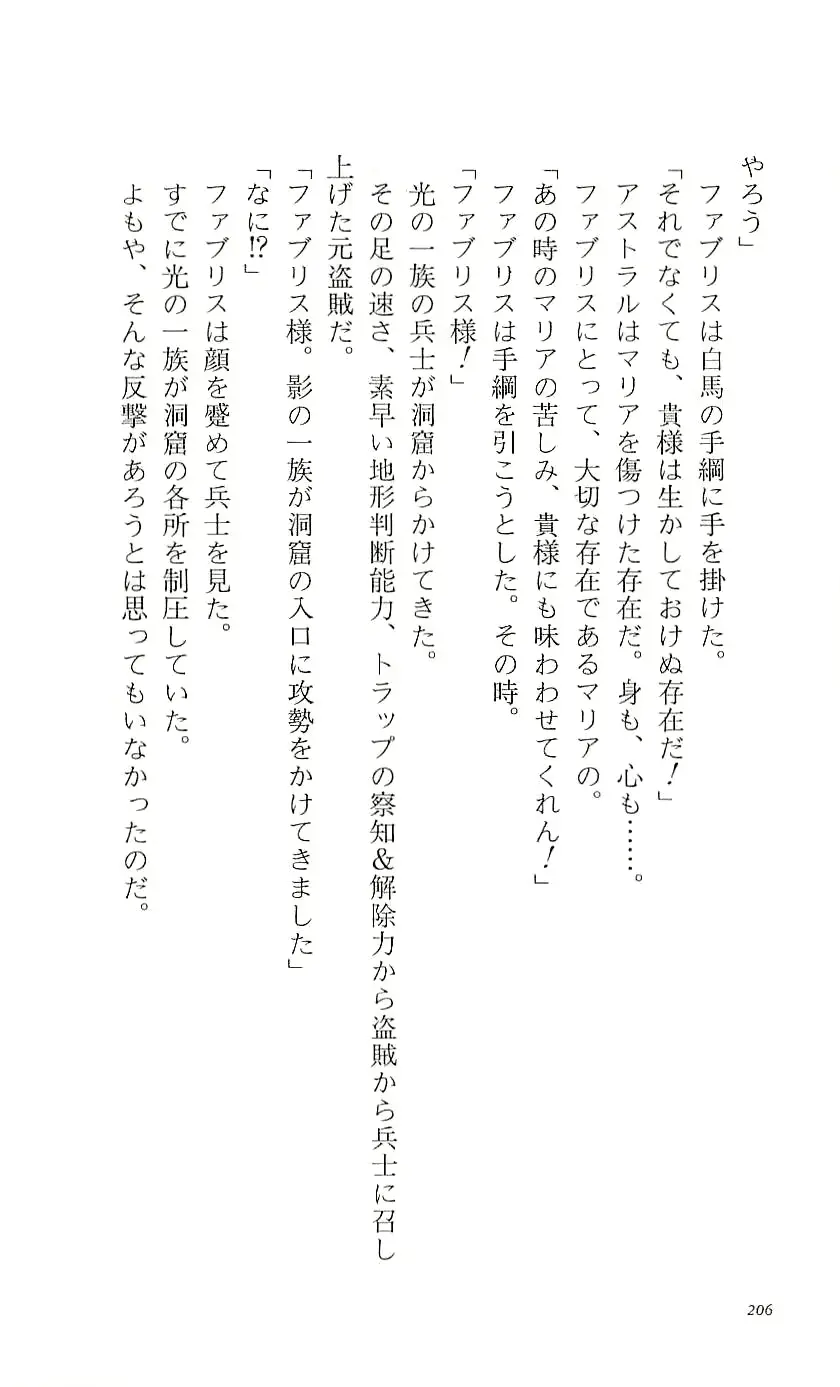 やろう」
　ファブリスは白馬の手綱に手を掛けた。
「それでなくても、貴様は生かしておけぬ存在だ！」
　アストラルはマリアを傷つけた存在だ。身も、心も……。
　ファブリスにとって、大切な存在であるマリアの。
「あの時のマリアの苦しみ、貴様にも味わわせてくれん！」
　ファブリスは手綱を引こうとした。その時。
「ファブリス様！」
　光の一族の兵士が洞窟からかけてきた。
　その足の速さ、素早い地形判断能力、トラップの察知＆解除力から盗賊から兵士に召し
上げた元盗賊だ。
「ファブリス様。影の一族が洞窟の入口に攻勢をかけてきました」
「なに!?」
　ファブリスは顔を蹙めて兵士を見た。
　すでに光の一族が洞窟の各所を制圧していた。
　よもや、そんな反撃があろうとは思ってもいなかったのだ。
206